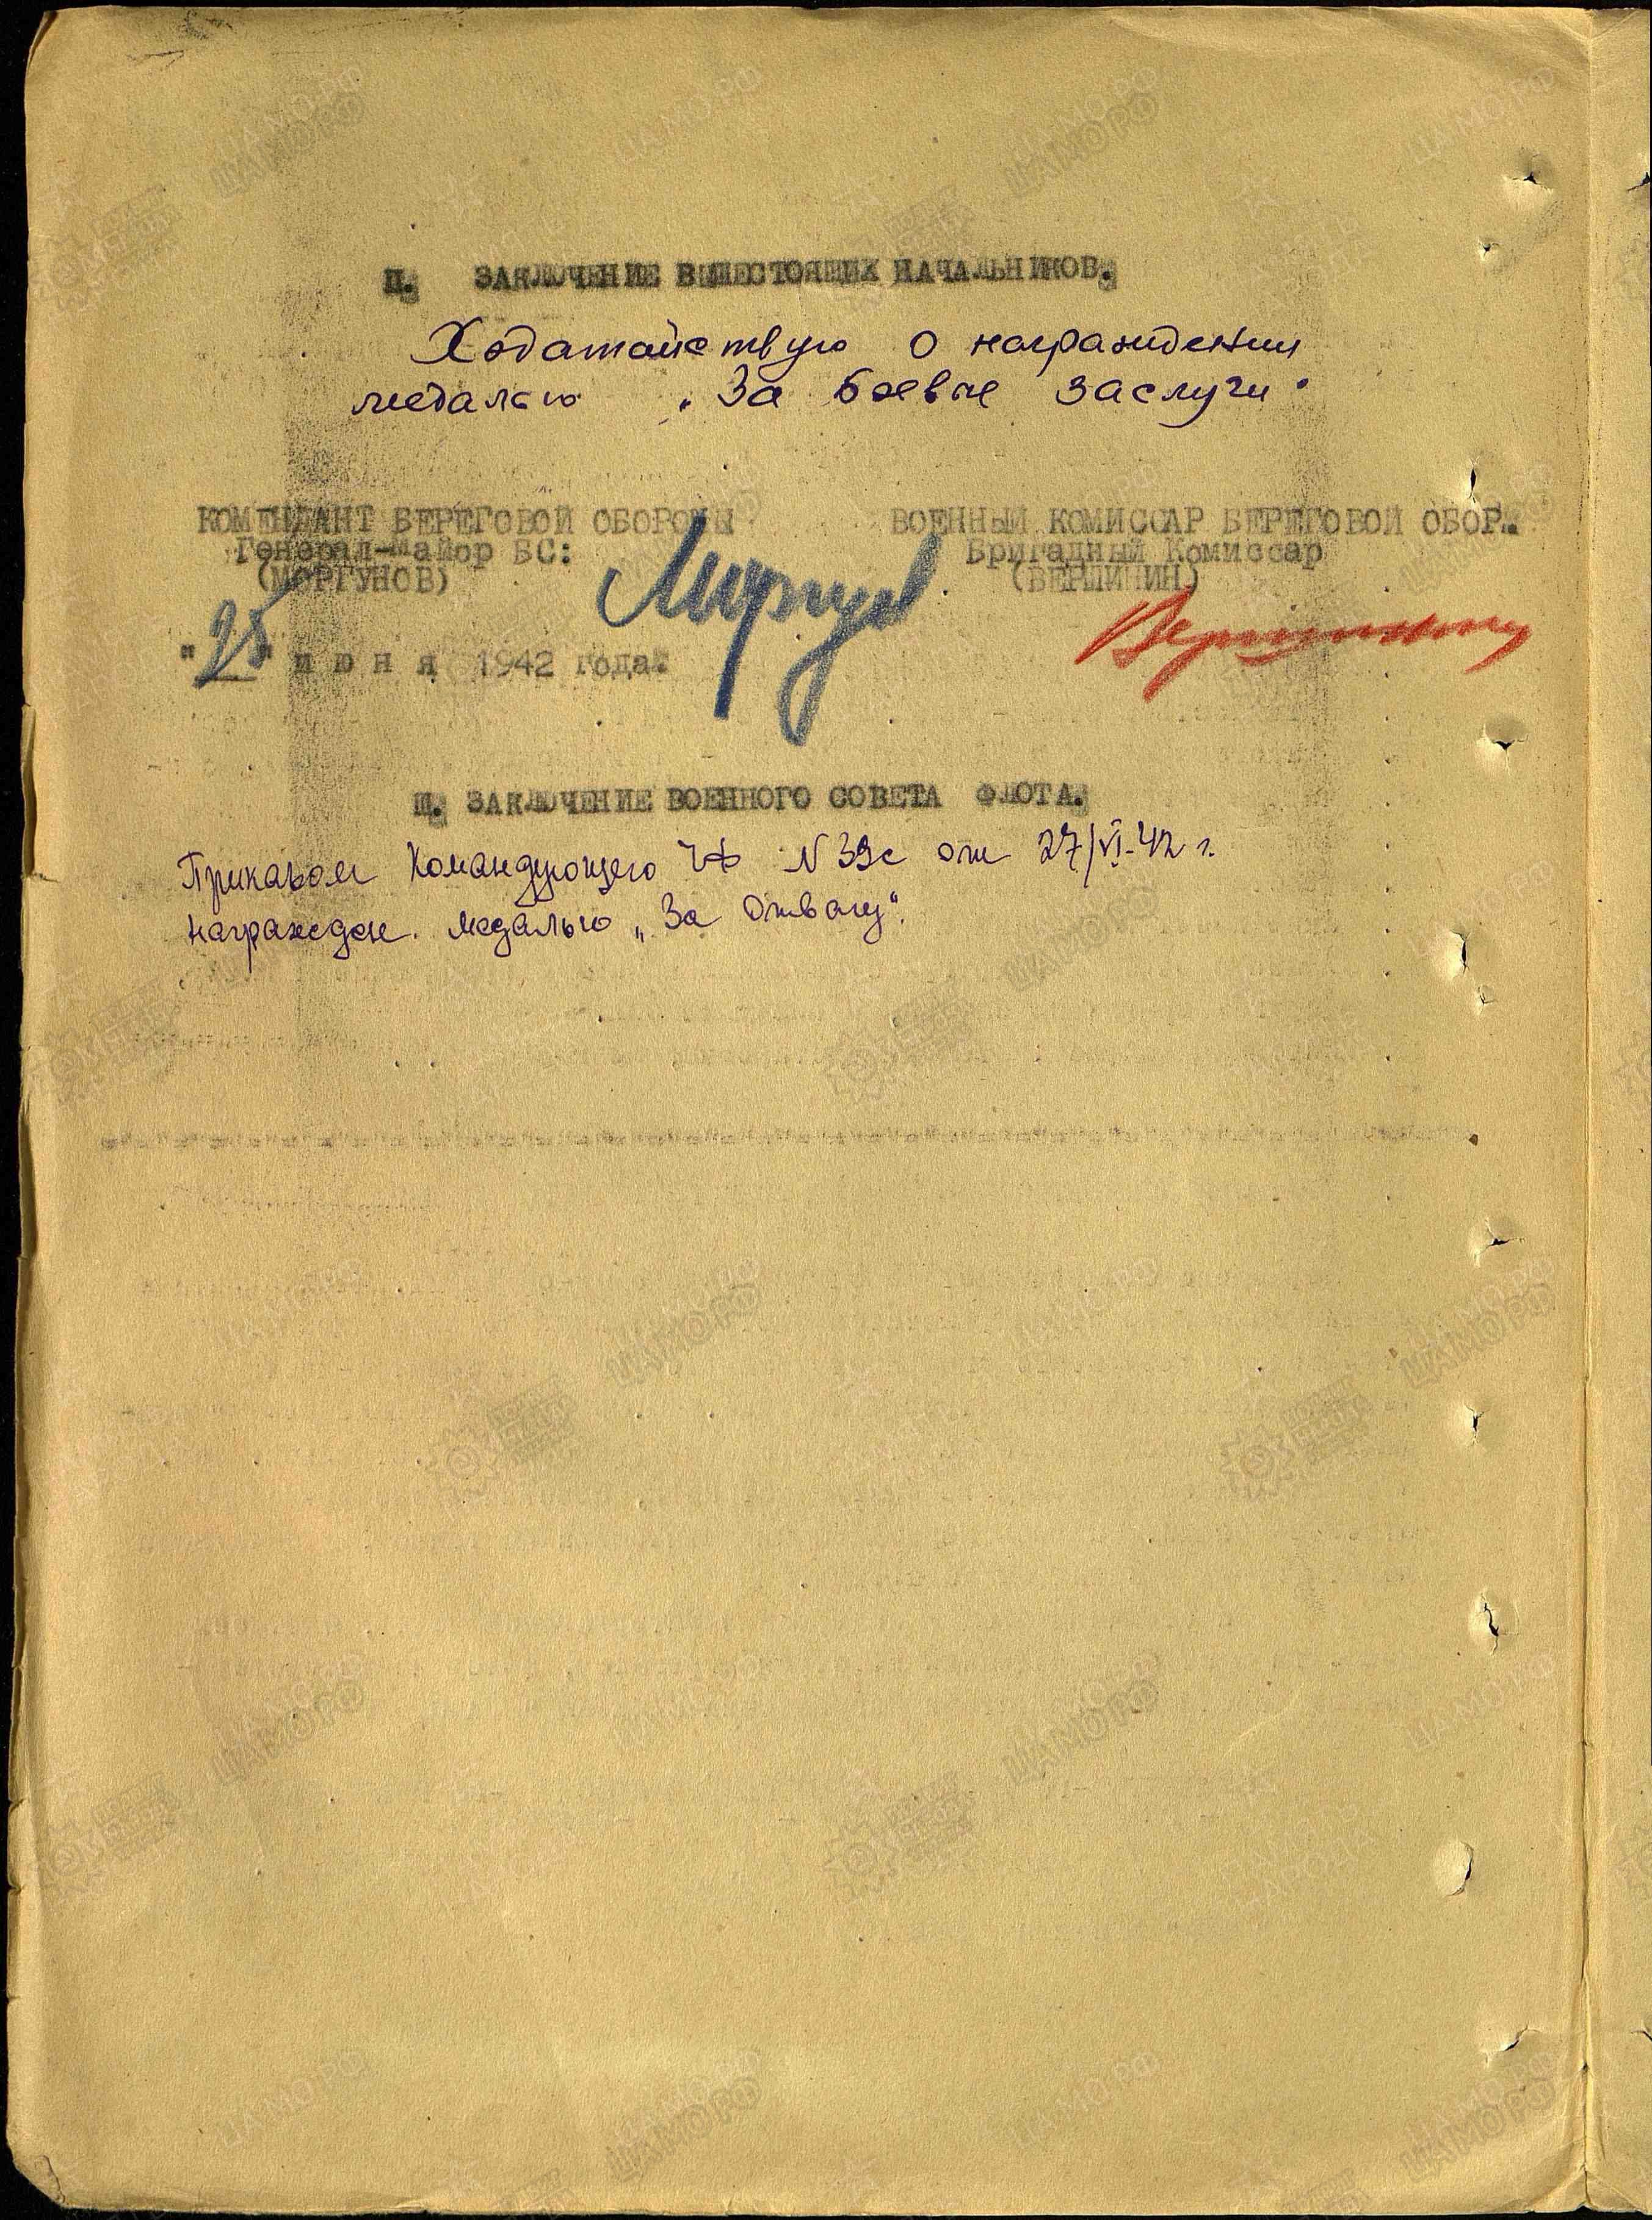 II. ЗАКЛЮЧЕНИЕ ВЫШЕСТОЯЩИХ НАЧАЛЬНИКОВ.
Ходатайствую о награждении
медалью „За боевые заслуги"
КОМЕНДАНТ БЕРЕГОВОЙ ОБОРОНЫ ВОЕННЫЙ КОМИССАР БЕРЕГОВОЙ ОБОР.
Генерал-Майор БС: Бригадный Комиссар
(МОРГУНОВ) (ВЕРШИНИН)
"25" июня 1942 года.
III. ЗАКЛЮЧЕНИЕ ВОЕННОГО СОВЕТА ФЛОТА.
Приказом Командующего ЧФ N 39с от 27/VI-42 г.
награжден. Медалью „За Отвагу".